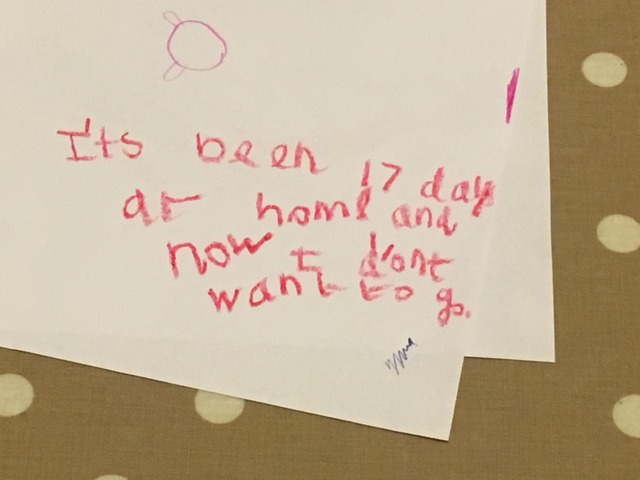 It's been 17 days
at home and
now I don't
want to go.